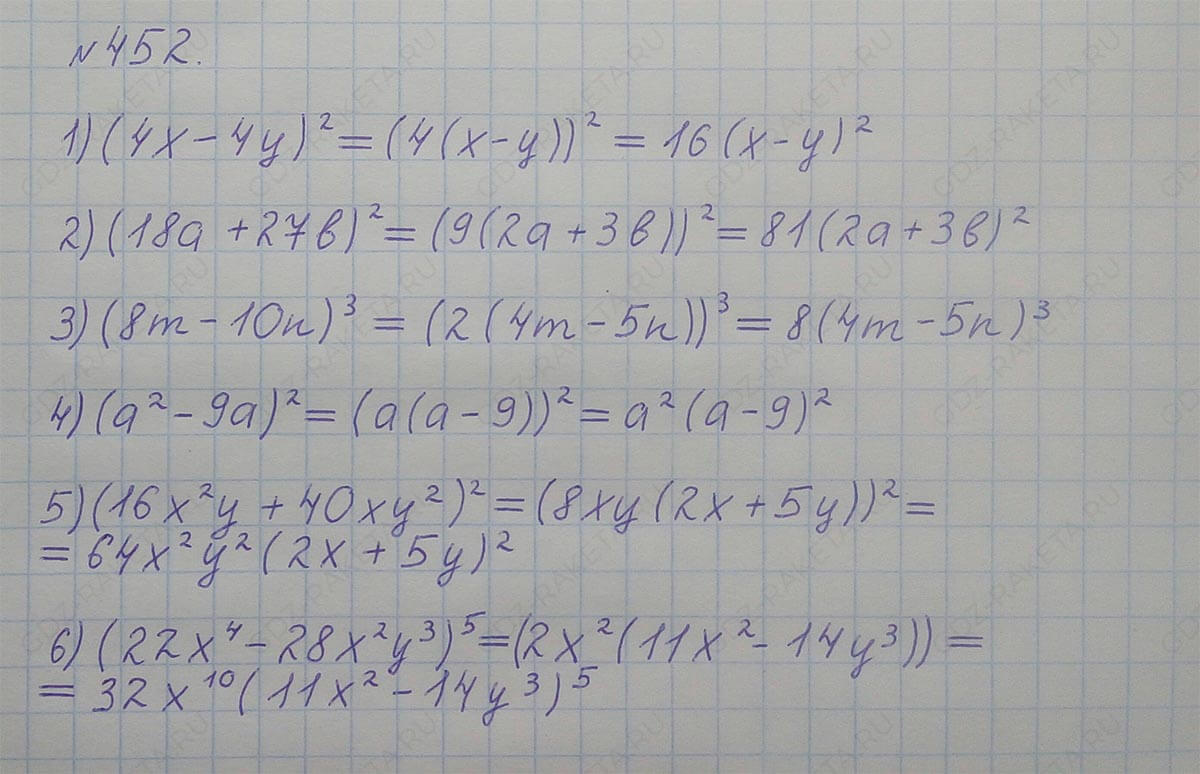 №452.
1) (4x - 4y)² = (4(x-y))² = 16(x-y)²
2) (18a + 27в)² = (9(2a + 3в))² = 81(2a + 3в)²
3) (8m - 10n)³ = (2(4m - 5n))³ = 8(4m - 5n)³
4) (a² - 9a)² = (a(a - 9))² = a²(a - 9)²
5) (16x²y + 40xy²)² = (8xy(2x + 5y))² =
= 64x²y²(2x + 5y)²
6) (22x⁴ - 28x²y³)⁵ = (2x²(11x² - 14y³)) =
= 32x¹⁰(11x² - 14y³)⁵
GDZ-RAKETA.RU